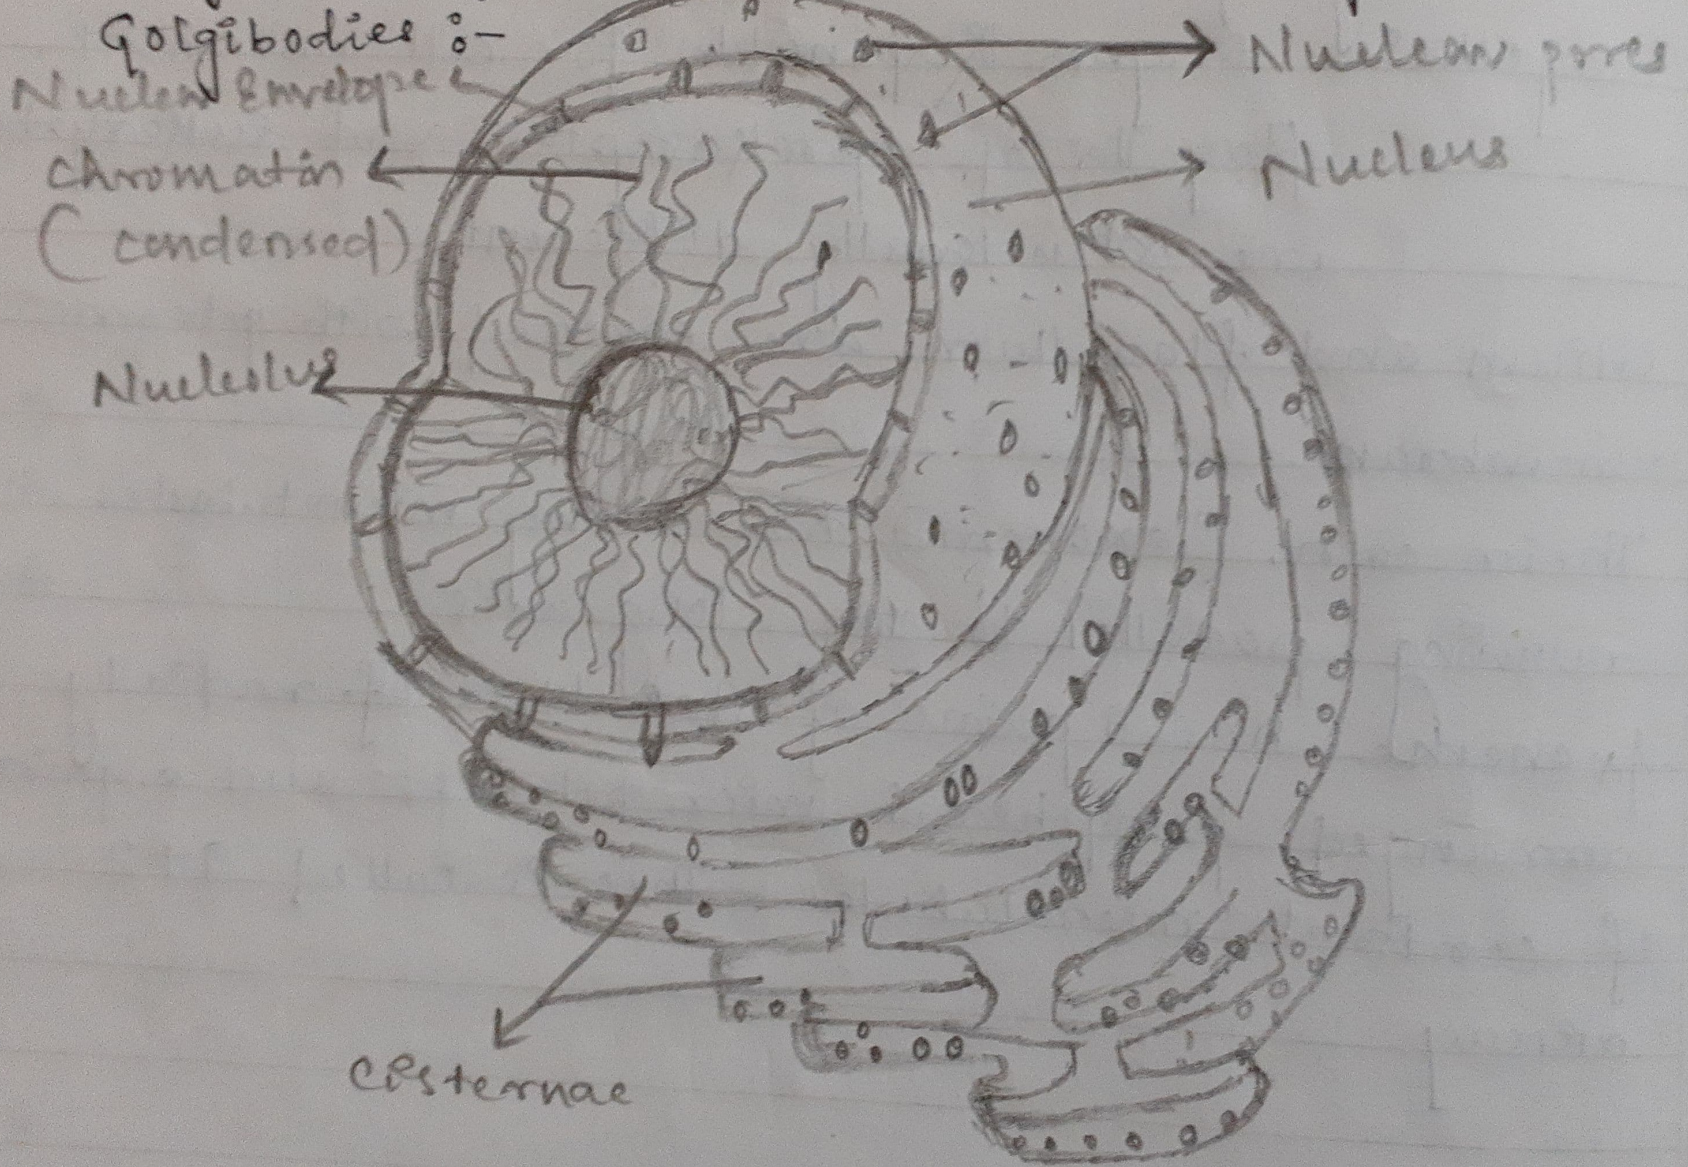 Golgibodies :-
Nuclear Envelope
Chromatin
(condensed)
Nucleolus
Nuclear pores
Nucleus
Cisternae